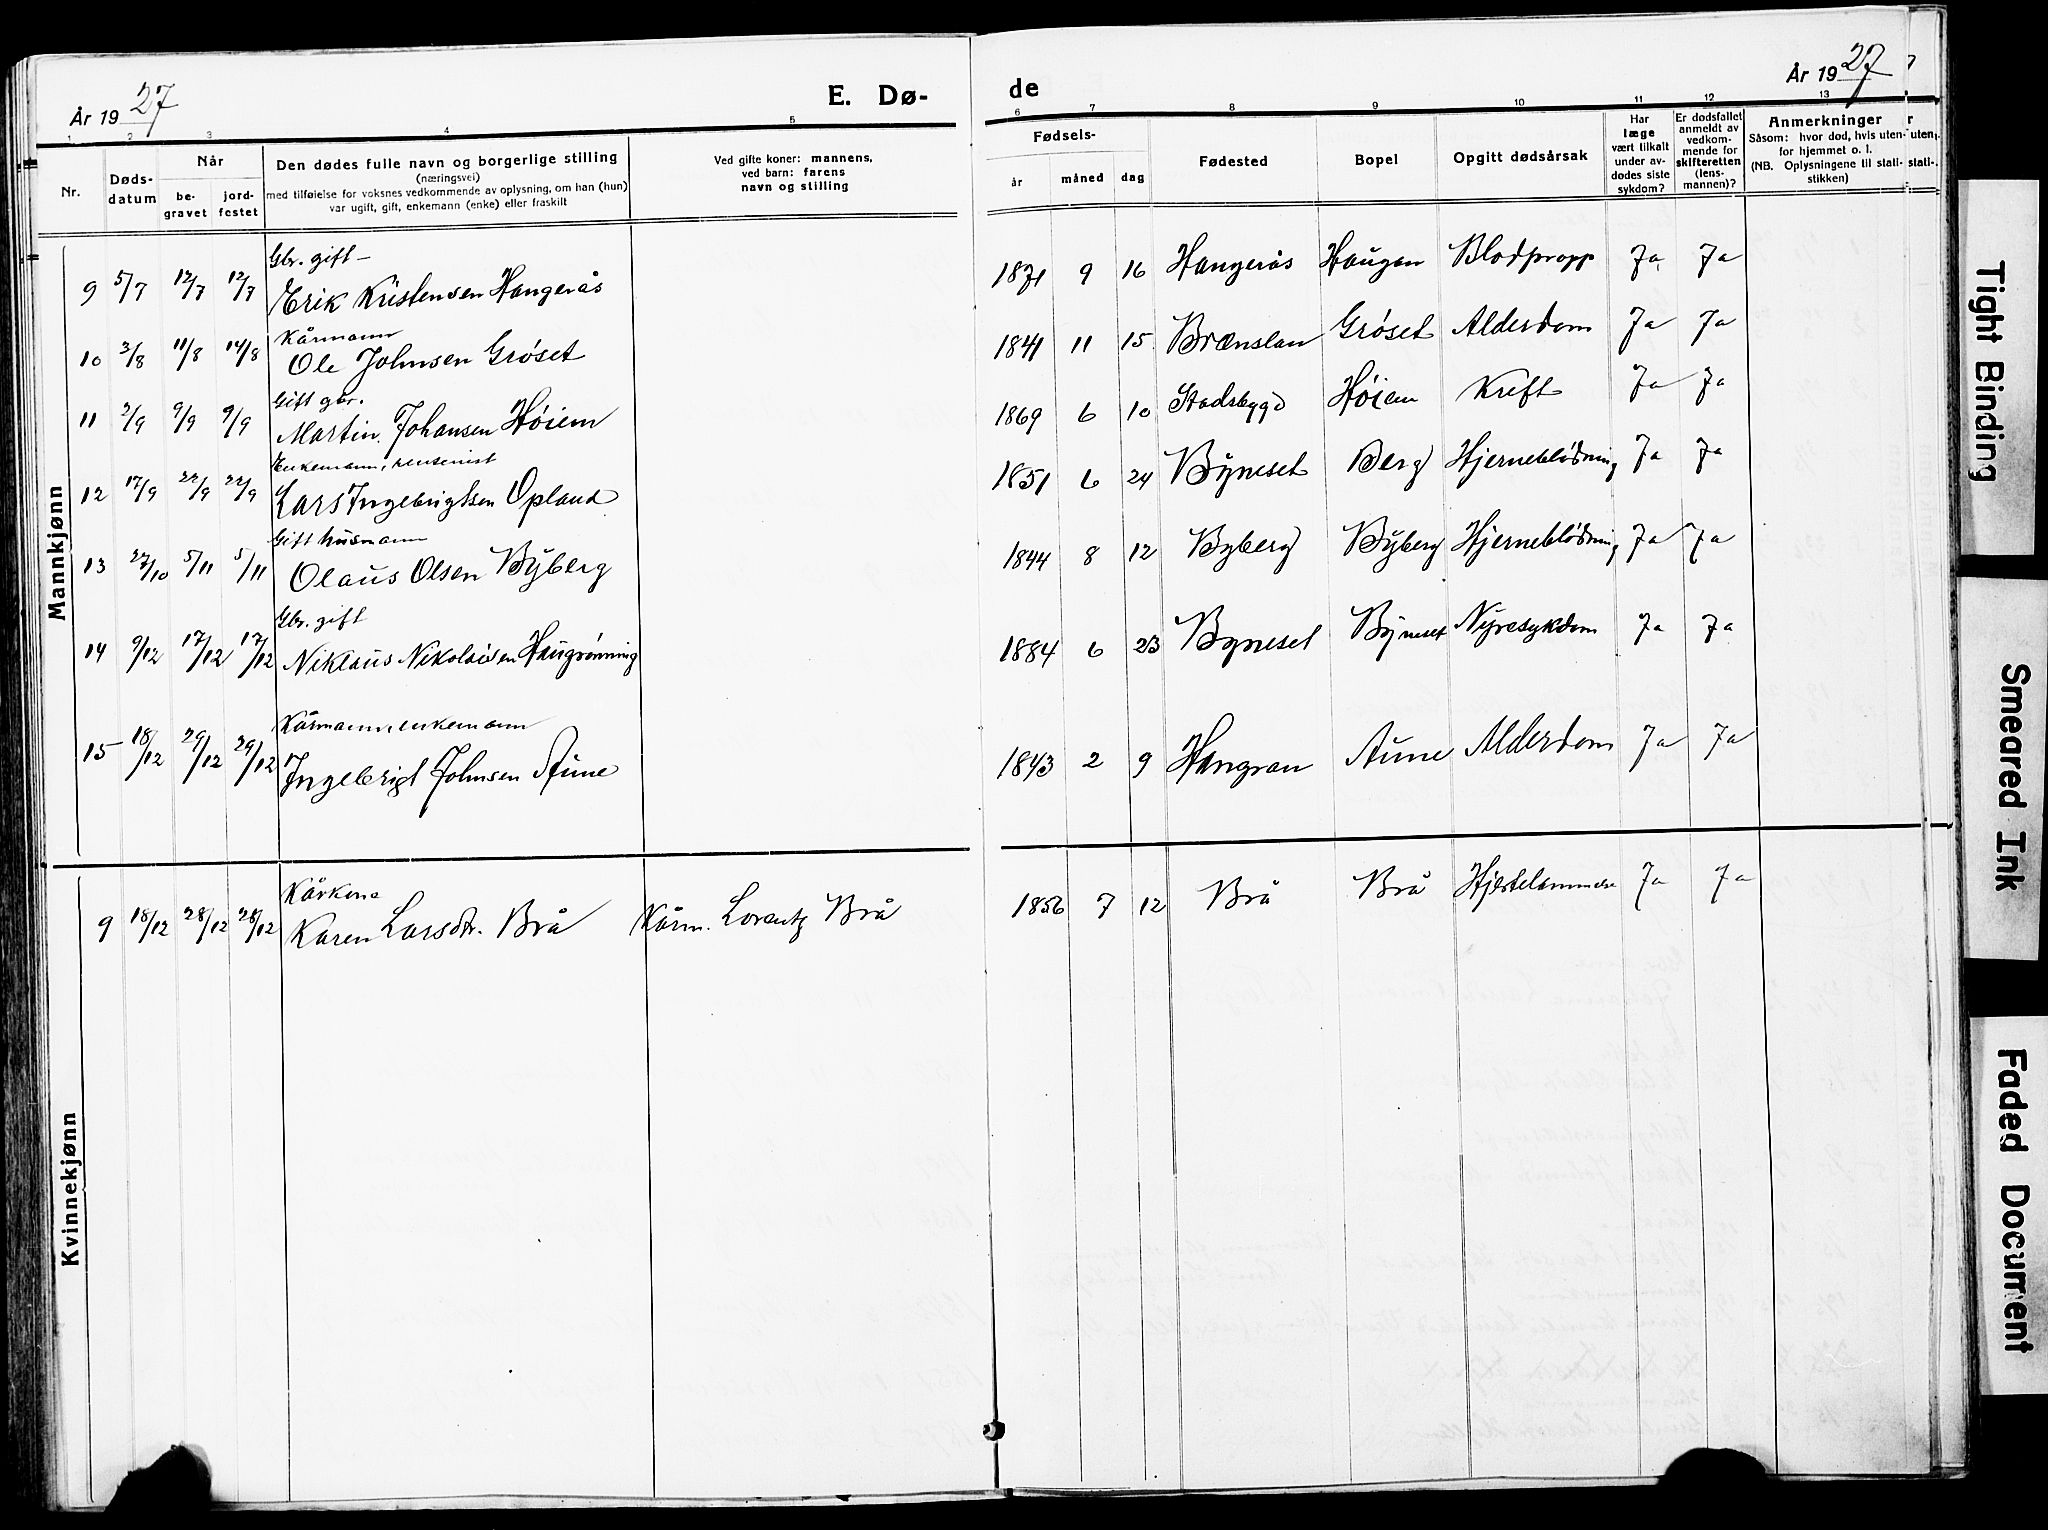 År 1927
E. Dø-
de
År 1927
1 2 3 4 5 6 7 8 9 10 11 12 13
Nr.
Døds-
datum
Når
be-
gravet
jord-
festet
Den dødes fulle navn og borgerlige stilling
(næringsvei)
med tilføielse for voksnes vedkommende av oplysning, om han (hun)
var ugift, gift, enkemann (enke) eller fraskilt
Ved gifte koner: mannens,
ved barn: farens
navn og stilling
Fødsels-
år måned dag
Fødested
Bopel
Opgitt dødsårsak
Har
læge
vært tilkalt
under av-
dødes siste
sykdom?
Er dødsfallet
anmeldt av
vedkom-
mende for
skifteretten
(lens-
mannen)?
Anmerkninger
Såsom: hvor død, hvis uten-
for hjemmet o. l.
(NB. Oplysningene til stati-
stikken)
r
uten-
stati-
Mannkjønn
Gbr. gift -
9 5/7 12/7 12/7 Erik Kristensen Haugerås 1871 9 16 Haugerås Haugan Blodpropp Ja Ja
Kårmann
10 3/8 11/8 14/8 Ole Johnsen Grøset 1841 11 15 Brenslan Grøset Alderdom Ja Ja
Gift gbr.
11 2/9 9/9 9/9 Martin Johansen Høiem 1869 6 10 Stadsbygd Høiem Kreft Ja Ja
Enkemann, rentenist
12 17/9 22/9 22/9 Lars Ingebrigtsen Opland 1851 6 24 Byneset Berg Hjerneblødning Ja Ja
Gift husmann
13 27/10 5/11 5/11 Olaus Olsen Byberg 1844 8 12 Byberg Byberg Hjerneblødning Ja Ja
Gbr. gift
14 9/12 17/12 17/12 Niklaus Nikolaisen Haugrønning 1884 6 23 Byneset Byneset Nyresykdom Ja Ja
Kårmann, enkemann
15 18/12 29/12 29/12 Ingebrigt Johnsen Aune 1843 2 9 Hangran Aune Alderdom Ja Ja
Kvinnekjønn
Kårkone
9 18/12 28/12 28/12 Karen Larsdtr. Brå Kårm. Lorentz Brå 1856 7 12 Brå Brå Hjertelammelse Ja Ja
Tight Binding
Smeared Ink
Faded Document